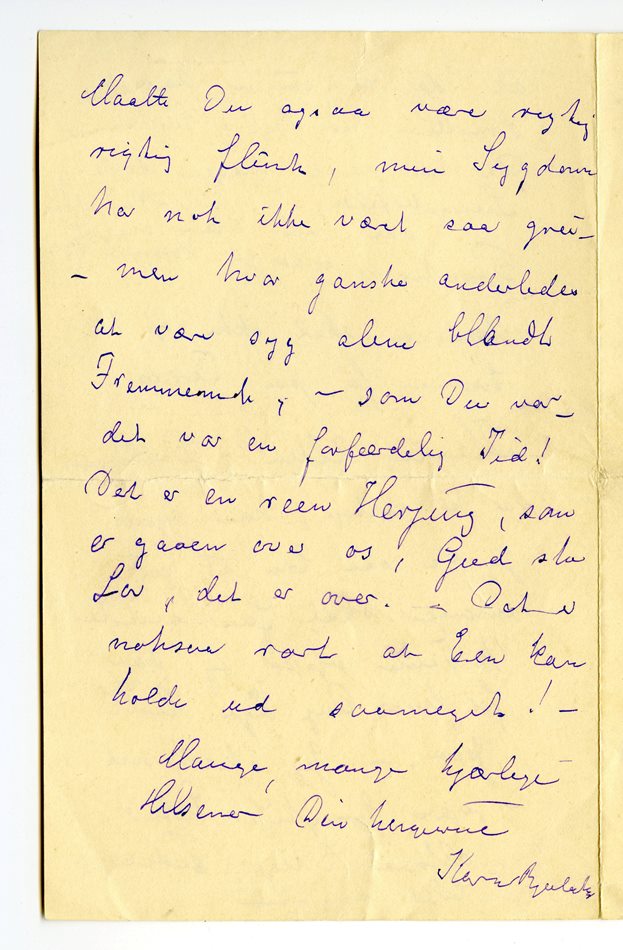 Maatte Du ogsaa være rigtig
rigtig flink, min Sygdom
har nok ikke været saa grei –
– men hvor ganske anderledes
at være syg alene blandt
Fremmede, – som Du var –
det var en forfærdelig Tid!
Det er en reen Herjing, som
er gaaen over os, Gud ske
Lov, det er over. – Det er
noksaa rart at Een kan
holde ud saameget! –
Mange, mange kjærlige
Hilsener Din hengivne